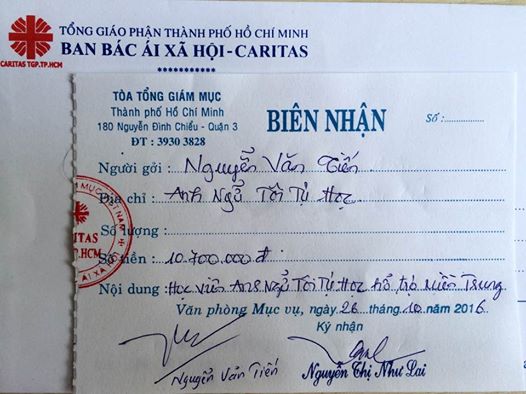 TỔNG GIÁO PHẬN THÀNH PHỐ HỒ CHÍ MINH
BAN BÁC ÁI XÃ HỘI-CARITAS
CARITAS TGP.TP.HCM
***********
TÒA TỔNG GIÁM MỤC
Thành phố Hồ Chí Minh
180 Nguyễn Đình Chiểu - Quận 3
ĐT : 3930 3828
BIÊN NHẬN
Số :
Người gởi : Nguyễn Văn Tiến
Địa chỉ : Anh Ngữ Tôi Tự Học
Số lượng :
Số tiền : 10.700.000 đ
Nội dung : Học viên Anh Ngữ Tôi Tự Học hỗ trợ miền Trung
Văn phòng Mục vụ, ngày 26 tháng 10 năm 2016
Ký nhận
Nguyễn Văn Tiến
Nguyễn Thị Như Lai